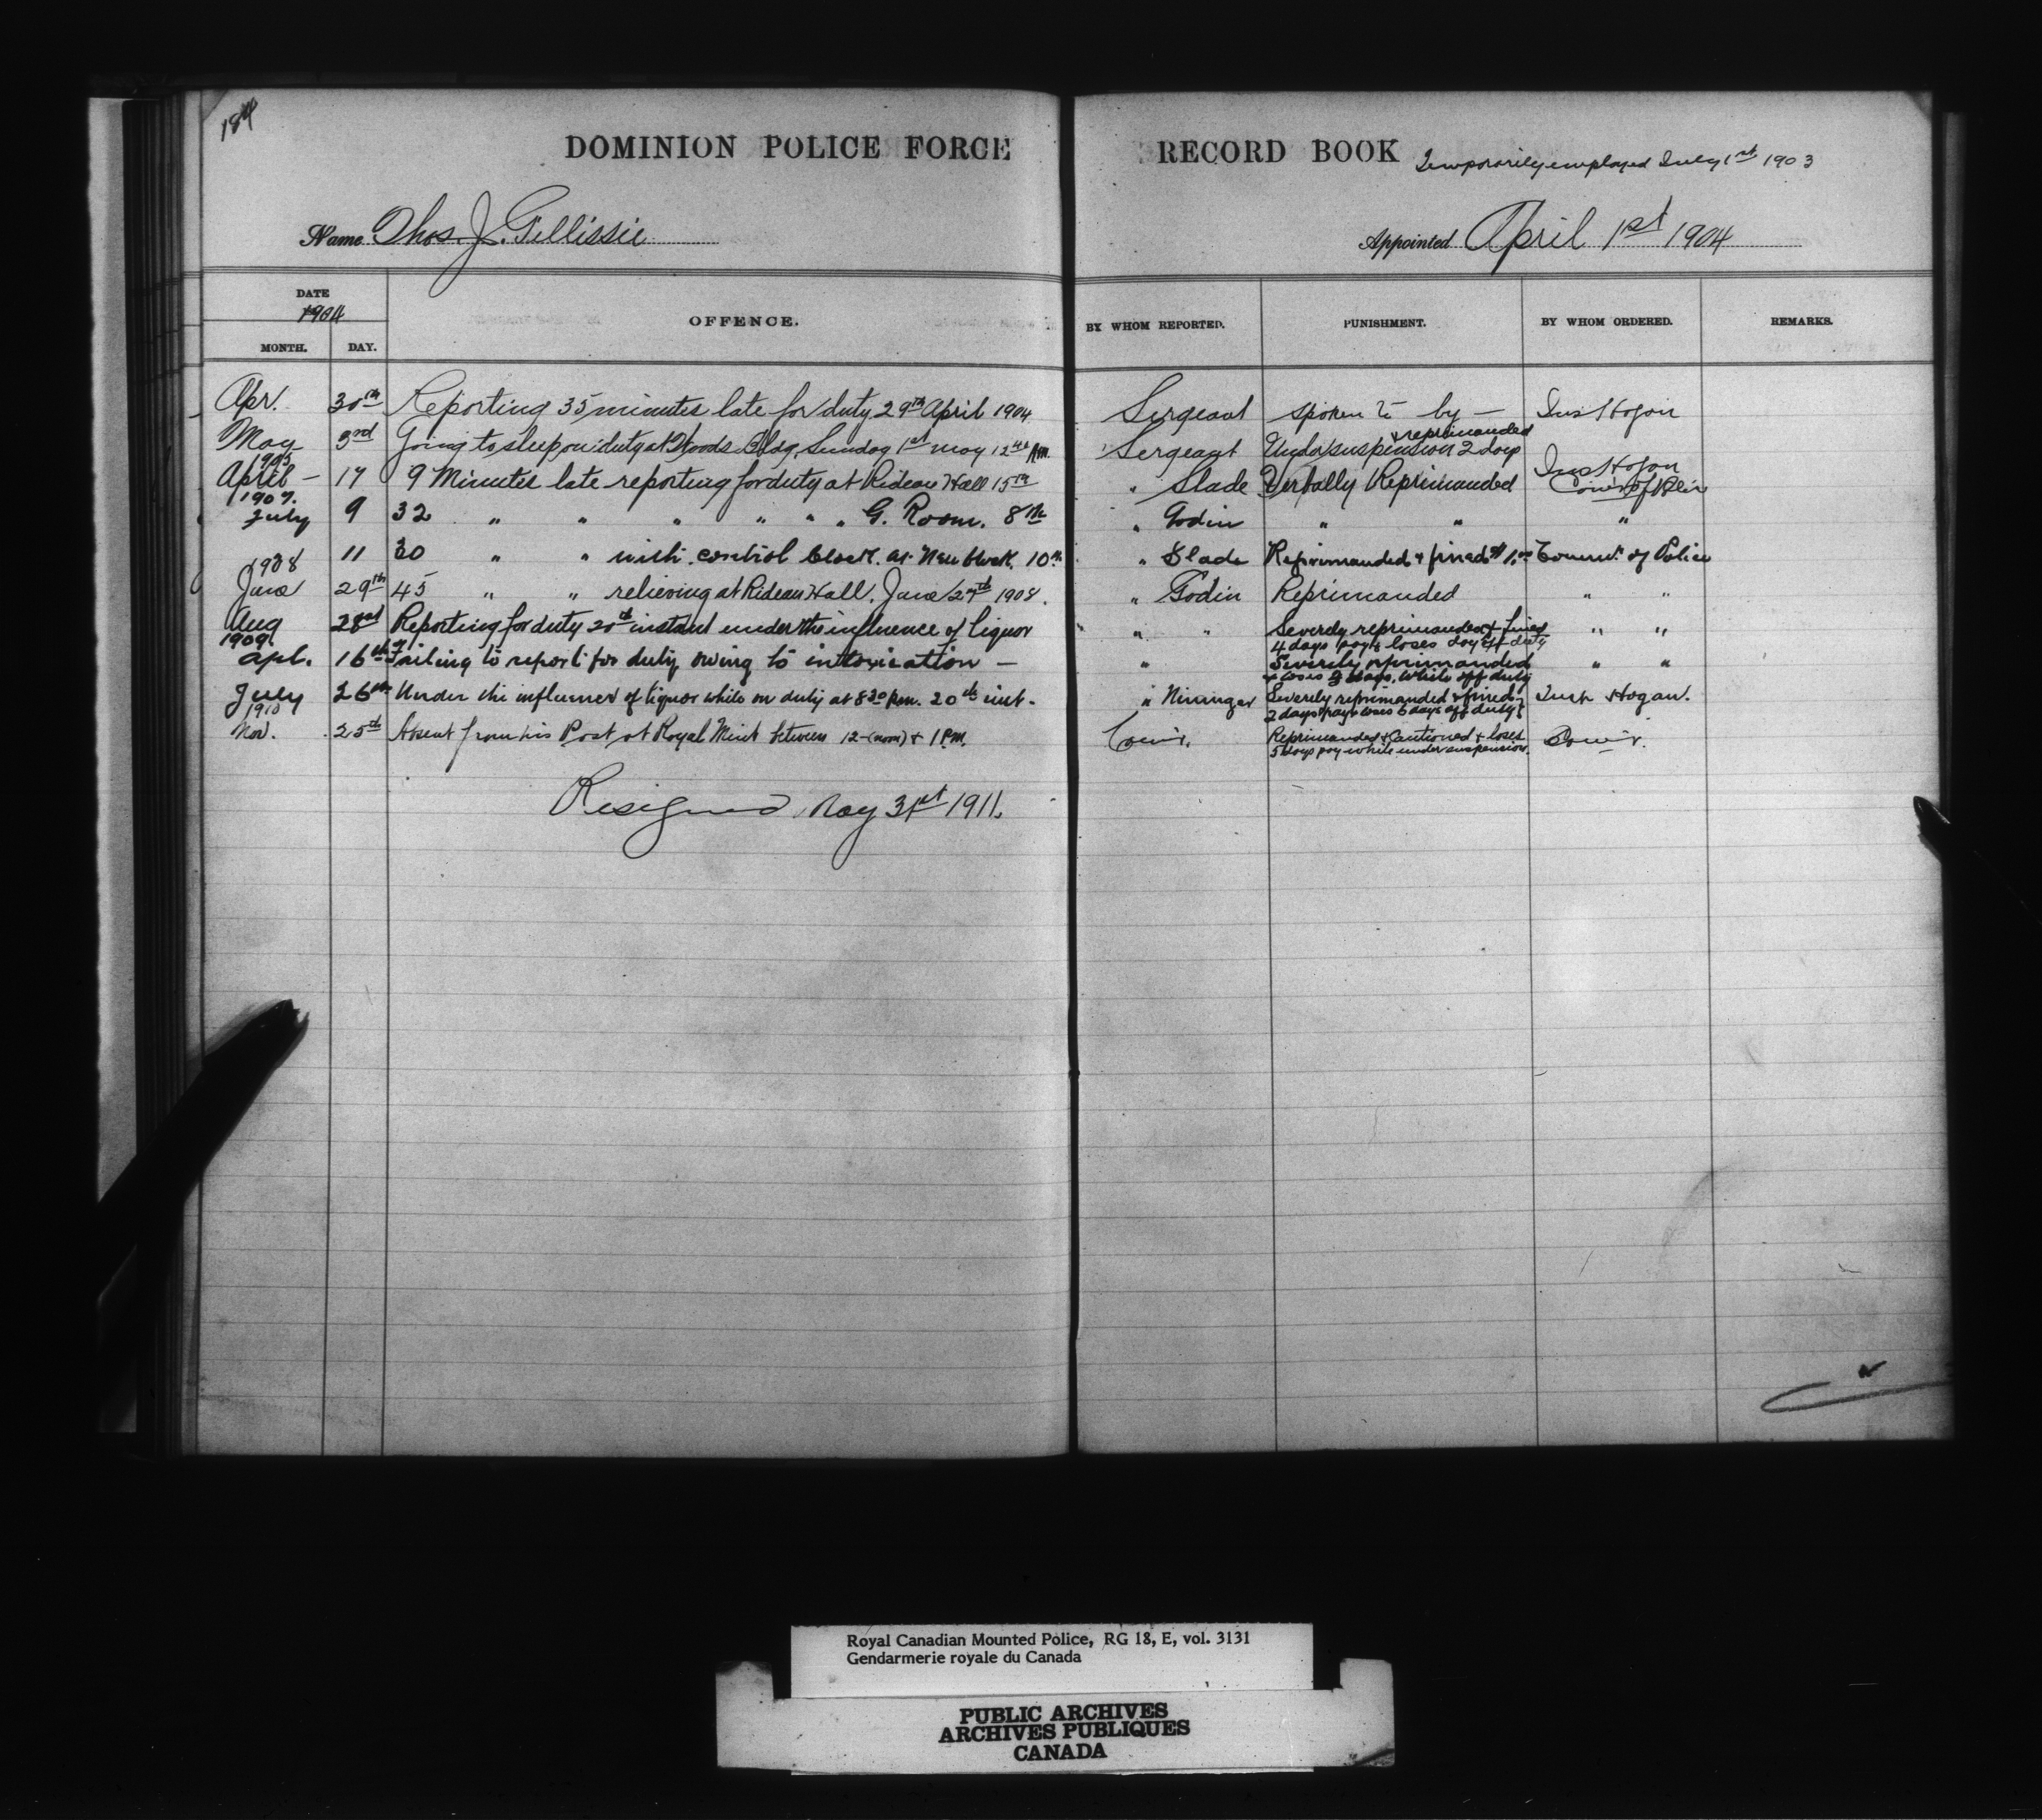 184
DOMINION POLICE FORCE RECORD BOOK Temporarily employed July 1st 1903
Name Thos. J. Gillissie Appointed April 1st 1904
DATE
1904
MONTH. DAY. OFFENCE. BY WHOM REPORTED. PUNISHMENT. BY WHOM ORDERED. REMARKS.
Apr. 30th Reporting 35 minutes late for duty 29th April 1904 Sergeant spoken to by — Ins Hogan
May 3rd Going to sleep on duty at Woods Bldg, Sunday 1st May 12 AM. Sergeant Under suspension 2 days & reprimanded Ins Hogan
1905
April — 17 9 Minutes late reporting for duty at Rideau Hall 15th " Slade Verbally Reprimanded Com'r of Police
1907.
July 9 32 " " " " " " G. Room. 8th " Godin " " "
11 30 " " with control clock at New block. 10th " Slade Reprimanded & fined $1.00 Commr. of Police
1908
June 29th 45 " " relieving at Rideau Hall. June 27th 1908. " Godin Reprimanded " "
Aug 28 Reporting for duty 20th instant under the influence of liquor " " Severely reprimanded & fined " "
4 days pay & loses day off duty
1909
Apl. 16th Failing to report for duty owing to intoxication — " Severely reprimanded " "
& loses 2 days, while off duty
July 26th Under the influence of liquor while on duty at 8 30 P.m. 20th inst. " Niningar Severely reprimanded & fined Insp Hogan.
2 days pay & loses 6 days off duty
1910
Nov. 25th Absent from his Post at Royal Mint between 12-(noon) & 1 P.M. Com'r. Reprimanded & Cautioned & loses Com'r.
5 days pay while under suspension.
Resigned May 31st 1911.
Royal Canadian Mounted Police, RG 18, E, vol. 3131
Gendarmerie royale du Canada
PUBLIC ARCHIVES
ARCHIVES PUBLIQUES
CANADA